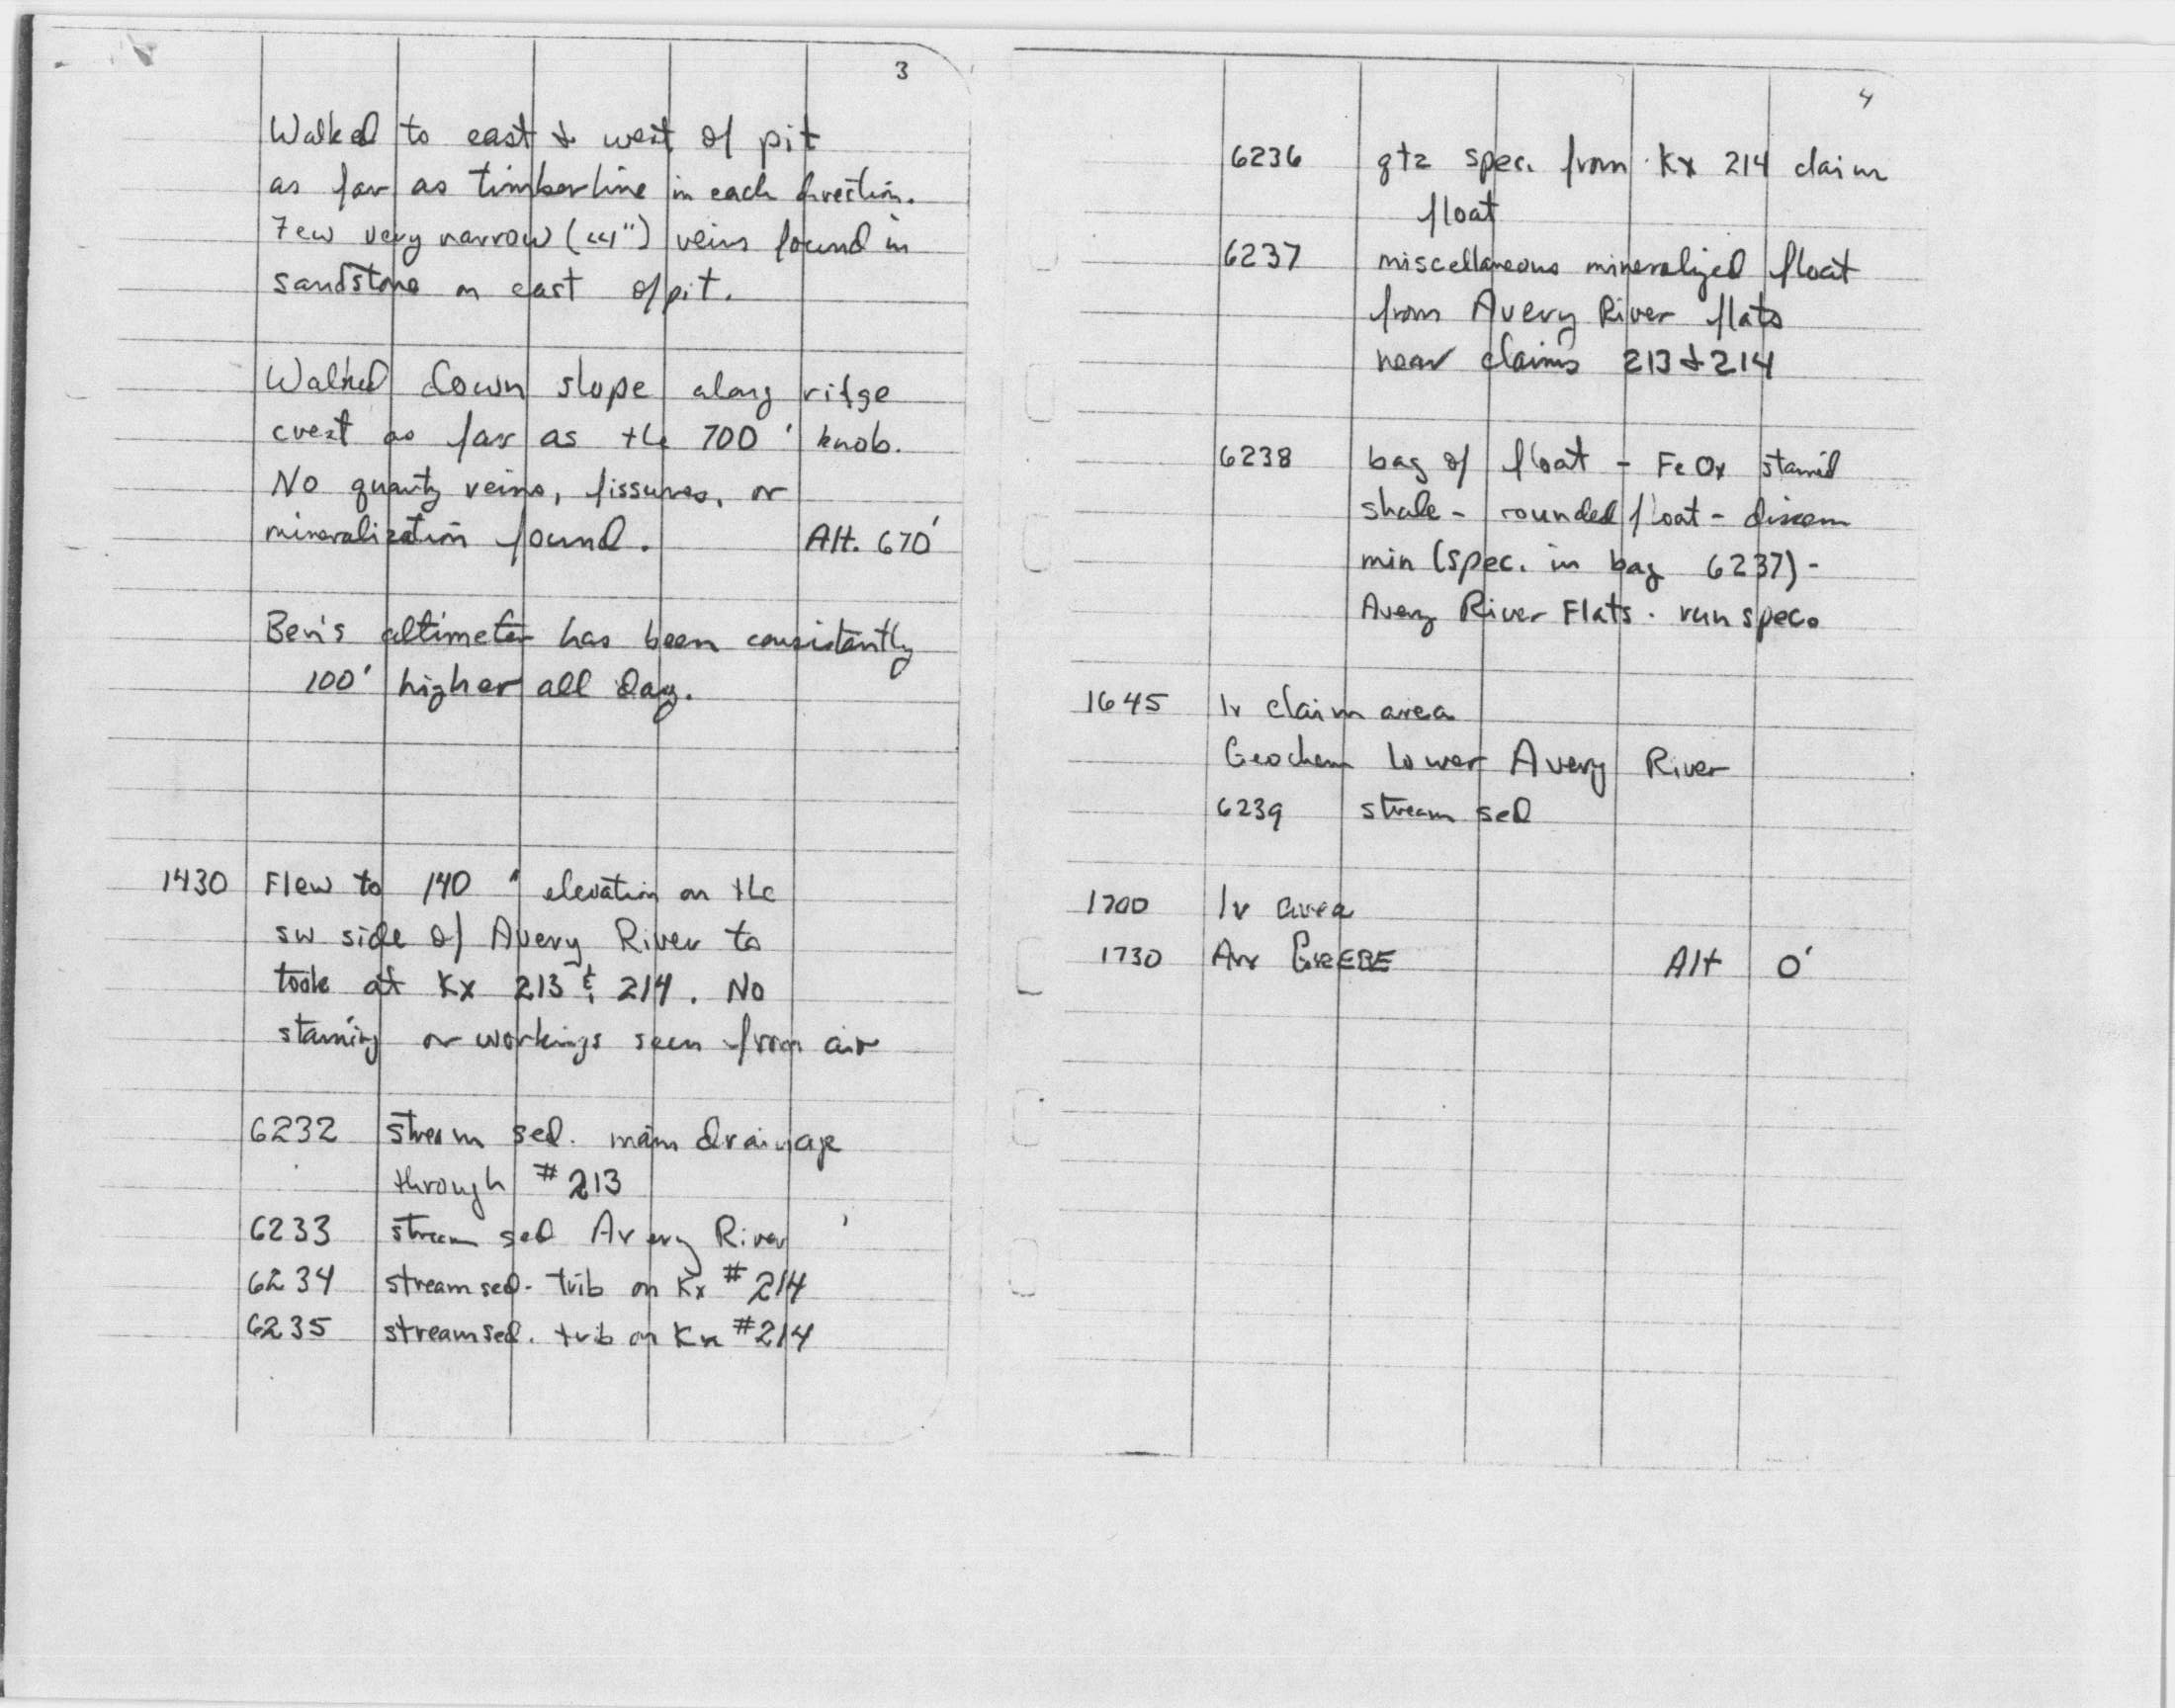 3
Walked to east & west of pit
as far as timberline in each direction.
Few very narrow (<<1") veins found in
sandstone on east of pit.
Walked down slope along ridge
crest as far as the 700' knob.
No quartz veins, fissures, or
mineralization found. Alt. 670'
Ben's altimeter has been consistantly
100' higher all day.
1430 Flew to 140 ' elevation on the
SW side of Avery River to
look at Kx 213 & 214. No
staining or workings seen from air
6232 stream sed. main drainage
through #213
6233 stream sed Avery River
6234 stream sed. trib on Kx #214
6235 stream sed. trib on Kx #214
4
6236 qtz spec. from Kx 214 claim
float
6237 miscellaneous mineralized float
from Avery River flats
near claims 213 & 214
6238 bag of float - FeOx stained
shale - rounded float - dissem
min (spec. in bag 6237) -
Avery River Flats. run spec.
1645 lv claim area
Geochem lower Avery River
6239 stream sed
1700 lv area
1730 Arr GREBE Alt 0'